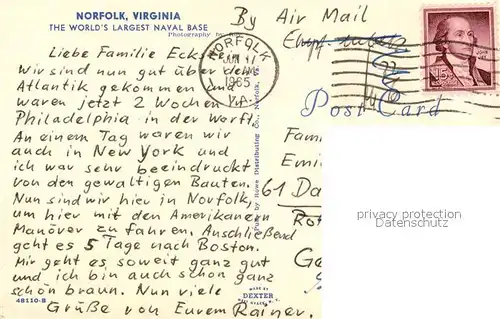 NORFOLK, VIRGINIA
THE WORLD'S LARGEST NAVAL BASE
Photography by
By Air Mail
NORFOLK
JUN 17
1965
VA.
15¢
Post Card
Liebe Familie
Wir sind nun gut über den
Atlantik gekommen und
waren jetzt 2 Wochen
Philadelphia in der Werft.
An einem Tag waren wir
auch in New York und
ich war sehr beeindruckt
von den gewaltigen Bauten.
Nun sind wir hier in Norfolk,
um hier mit den Amerikanern
Manöver zu fahren. Anschließend
geht es 5 Tage nach Boston.
Mir geht es soweit ganz gut
und ich bin auch schon ganz
schön braun. Nun viele
Grüße von Eurem Rainer.
48110-B
MADE BY
DEXTER
WEST NYACK, N. Y.
Pub. by Rowe Distributing Co., Norfolk, Va.
Fam
Emi
61 Da
Ge
privacy protection
Datenschutz